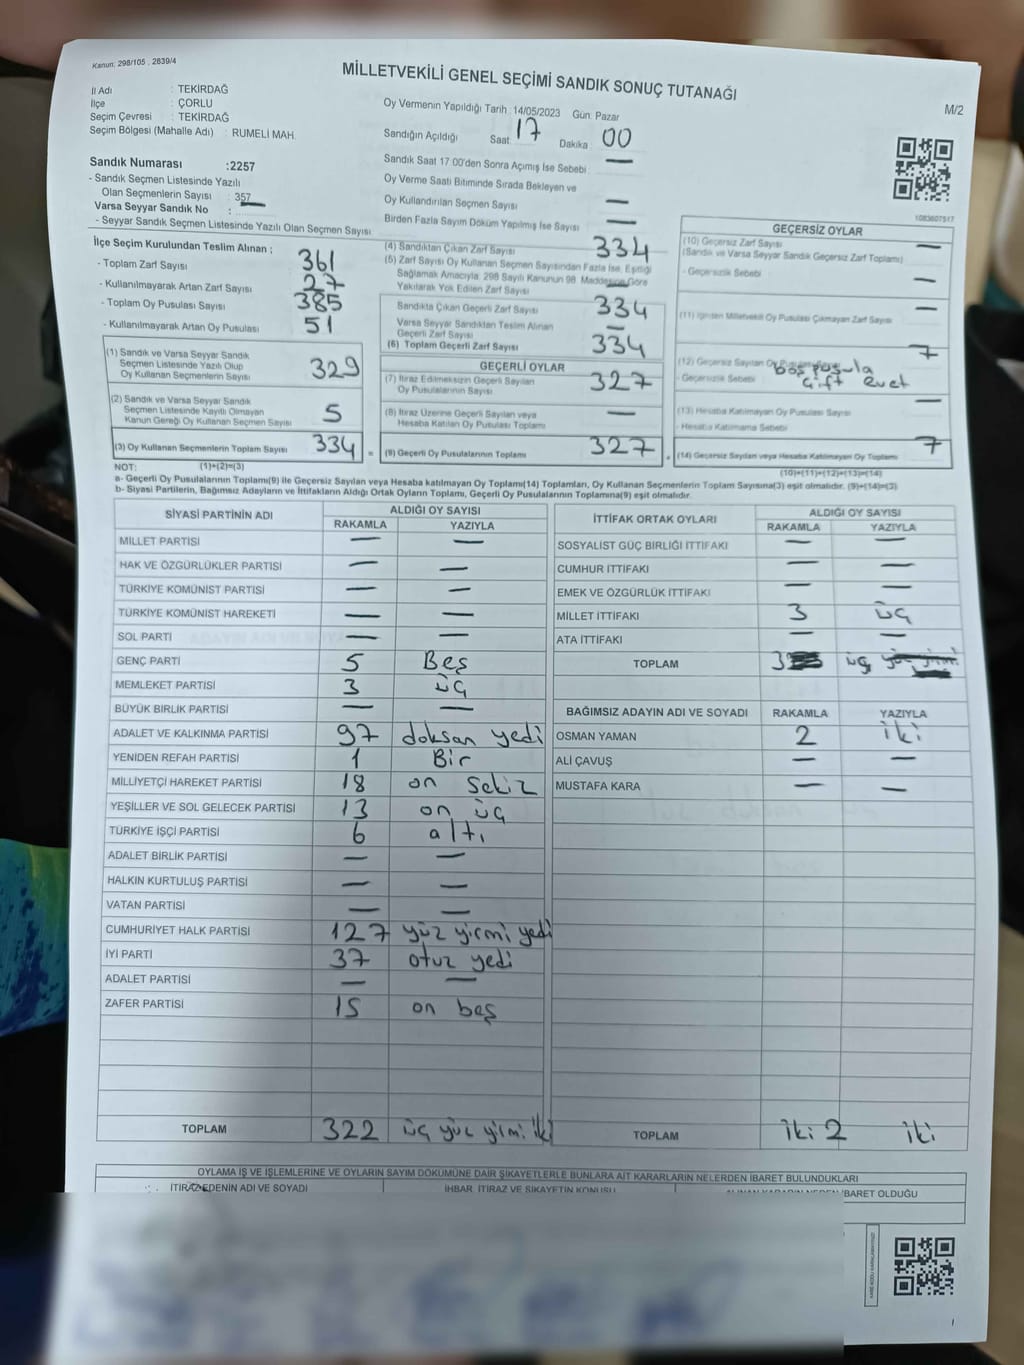 Kanun: 298/105 , 2839/4
MİLLETVEKİLİ GENEL SEÇİMİ SANDIK SONUÇ TUTANAĞI
M/2
İl Adı : TEKİRDAĞ
İlçe : ÇORLU
Seçim Çevresi : TEKİRDAĞ
Seçim Bölgesi (Mahalle Adı) : RUMELİ MAH.
Sandık Numarası :2257
- Sandık Seçmen Listesinde Yazılı
Olan Seçmenlerin Sayısı : 357
Varsa Seyyar Sandık No :
- Seyyar Sandık Seçmen Listesinde Yazılı Olan Seçmen Sayısı
Oy Vermenin Yapıldığı Tarih : 14/05/2023 Gün: Pazar
Sandığın Açıldığı Saat 17 Dakika 00
Sandık Saat 17 00'den Sonra Açımış İse Sebebi : —
Oy Verme Saati Bitiminde Sırada Bekleyen ve
Oy Kullandırılan Seçmen Sayısı —
Birden Fazla Sayım Döküm Yapılmış İse Sayısı —
1083607517
İlçe Seçim Kurulundan Teslim Alınan ;
- Toplam Zarf Sayısı 361
- Kullanılmayarak Artan Zarf Sayısı 27
- Toplam Oy Pusulası Sayısı 385
- Kullanılmayarak Artan Oy Pusulası 51
(1) Sandık ve Varsa Seyyar Sandık
Seçmen Listesinde Yazılı Olup
Oy Kullanan Seçmenlerin Sayısı 329
(2) Sandık ve Varsa Seyyar Sandık
Seçmen Listesinde Kayıtlı Olmayan
Kanun Gereği Oy Kullanan Seçmen Sayısı 5
(3) Oy Kullanan Seçmenlerin Toplam Sayısı 334 =
(4) Sandıktan Çıkan Zarf Sayısı 334
(5) Zarf Sayısı Oy Kullanan Seçmen Sayısından Fazla İse, Eşitliği
Sağlamak Amacıyla, 298 Sayılı Kanunun 98. Maddesine Göre
Yakılarak Yok Edilen Zarf Sayısı —
Sandıkta Çıkan Geçerli Zarf Sayısı 334
Varsa Seyyar Sandıktan Teslim Alınan
Geçerli Zarf Sayısı —
(6) Toplam Geçerli Zarf Sayısı 334
GEÇERLİ OYLAR
(7) İtiraz Edilmeksizin Geçerli Sayılan
Oy Pusulalarının Sayısı 327
(8) İtiraz Üzerine Geçerli Sayılan veya
Hesaba Katılan Oy Pusulası Toplamı —
(9) Geçerli Oy Pusulalarının Toplamı 327 +
GEÇERSİZ OYLAR
(10) Geçersiz Zarf Sayısı —
(Sandık ve Varsa Seyyar Sandık Geçersiz Zarf Toplamı)
- Geçersizlik Sebebi —
(11) İçinden Milletvekili Oy Pusulası Çıkmayan Zarf Sayısı —
(12) Geçersiz Sayılan Oy Pusulası 7
- Geçersizlik Sebebi boş pusula
çift evet
(13) Hesaba Katılmayan Oy Pusulası Sayısı —
- Hesaba Katılmama Sebebi
(14) Geçersiz Sayılan veya Hesaba Katılmayan Oy Toplamı 7
NOT: (1)+(2)=(3) (10)+(11)+(12)+(13)=(14)
a- Geçerli Oy Pusulalarının Toplamı(9) ile Geçersiz Sayılan veya Hesaba katılmayan Oy Toplamı(14) Toplamları, Oy Kullanan Seçmenlerin Toplam Sayısına(3) eşit olmalıdır. (9)+(14)=(3)
b- Siyasi Partilerin, Bağımsız Adayların ve İttifakların Aldığı Ortak Oyların Toplamı, Geçerli Oy Pusulalarının Toplamına(9) eşit olmalıdır.
SİYASİ PARTİNİN ADI ALDIĞI OY SAYISI
RAKAMLA YAZIYLA
MİLLET PARTİSİ — —
HAK VE ÖZGÜRLÜKLER PARTİSİ — —
TÜRKİYE KOMÜNİST PARTİSİ — —
TÜRKİYE KOMÜNİST HAREKETİ — —
SOL PARTİ — —
GENÇ PARTİ 5 Beş
MEMLEKET PARTİSİ 3 üç
BÜYÜK BİRLİK PARTİSİ — —
ADALET VE KALKINMA PARTİSİ 97 doksan yedi
YENİDEN REFAH PARTİSİ 1 Bir
MİLLİYETÇİ HAREKET PARTİSİ 18 on sekiz
YEŞİLLER VE SOL GELECEK PARTİSİ 13 on üç
TÜRKİYE İŞÇİ PARTİSİ 6 altı
ADALET BİRLİK PARTİSİ — —
HALKIN KURTULUŞ PARTİSİ — —
VATAN PARTİSİ — —
CUMHURİYET HALK PARTİSİ 127 yüz yirmi yedi
İYİ PARTİ 37 otuz yedi
ADALET PARTİSİ — —
ZAFER PARTİSİ 15 on beş
TOPLAM 322 üç yüz yirmi iki
İTTİFAK ORTAK OYLARI ALDIĞI OY SAYISI
RAKAMLA YAZIYLA
SOSYALİST GÜÇ BİRLİĞİ İTTİFAKI — —
CUMHUR İTTİFAKI — —
EMEK VE ÖZGÜRLÜK İTTİFAKI — —
MİLLET İTTİFAKI 3 üç
ATA İTTİFAKI — —
TOPLAM 3 üç yüz yirmi
BAĞIMSIZ ADAYIN ADI VE SOYADI RAKAMLA YAZIYLA
OSMAN YAMAN 2 iki
ALİ ÇAVUŞ — —
MUSTAFA KARA — —
TOPLAM iki 2 iki
OYLAMA İŞ VE İŞLEMLERİNE VE OYLARIN SAYIM DÖKÜMÜNE DAİR ŞİKAYETLERLE BUNLARA AİT KARARLARIN NELERDEN İBARET BULUNDUKLARI
İTİRAZ EDENİN ADI VE SOYADI İHBAR, İTİRAZ VE ŞİKAYETİN KONUSU İBARET OLDUĞU